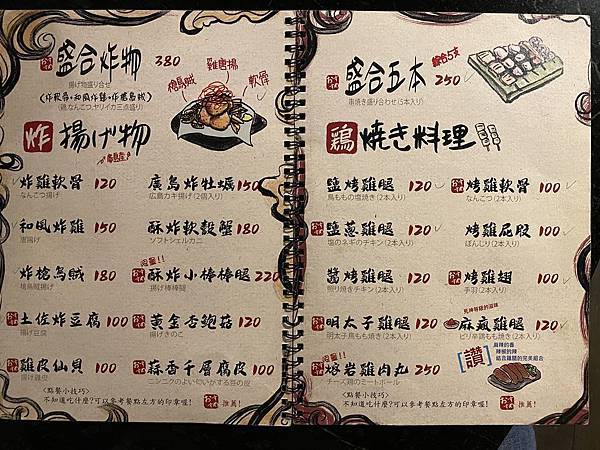 盛合炸物 380
揚げ物盛り合せ
(炸軟骨+和風炸雞+炸槍烏賊)
(鶏,なんこつ,ヤリイカ三点盛り)
槍烏賊
雞唐揚
軟骨
炸 揚げ物
炸雞軟骨 120
なんこつ揚げ
和風炸雞 150
唐揚げ
炸槍烏賊 180
槍烏賊揚げ
土佐炸豆腐 100
揚げ豆腐
雞皮仙貝 100
揚げ雞皮
廣島產
廣島炸牡蠣 150
広島カキ揚げ(2個入り)
酥炸軟殼蟹 180
ソフトシェルカニ
限量!!
酥炸小棒棒腿 220
揚げ棒棒腿
黃金杏鮑菇 120
揚げきのこ
蒜香千層腐皮 100
ニンニクのよいにいがする豆の皮
<點餐小技巧>
不知道吃什麼?可以參考餐點左方的印章喔!
推薦!
盛合五本 250
綜合5支
串焼き盛り合わせ(5本入り)
鶏 焼き料理
鹽烤雞腿 120
鳥ももの塩焼き(2本入り)
鹽蔥雞腿 120
塩のネギのチキン(2本入り)
醬烤雞腿 120
照り焼きチキン(2本入り)
明太子雞腿 120
明太子鳥もも焼き(2本入り)
限量!!
熔岩雞肉丸 250
チーズ鶏のミートボール
烤雞軟骨 100
なんこつ(2本入り)
烤雞屁股 100
ぼんじり(2本入り)
烤雞翅 100
手羽(2本入り)
麻瘋雞腿 120
ピリ辛鶏もも焼き(2本入り)
[讚]
麻辣的香
辣椒的辣
結合雞腿的完美組合
<點餐小技巧>
不知道吃什麼?可以參考餐點左方的印章喔!
推薦!